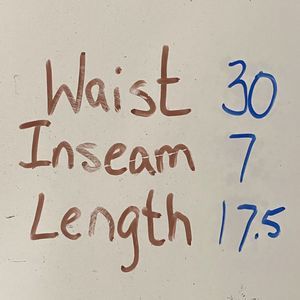 Waist 30
Inseam 7
Length 17.5